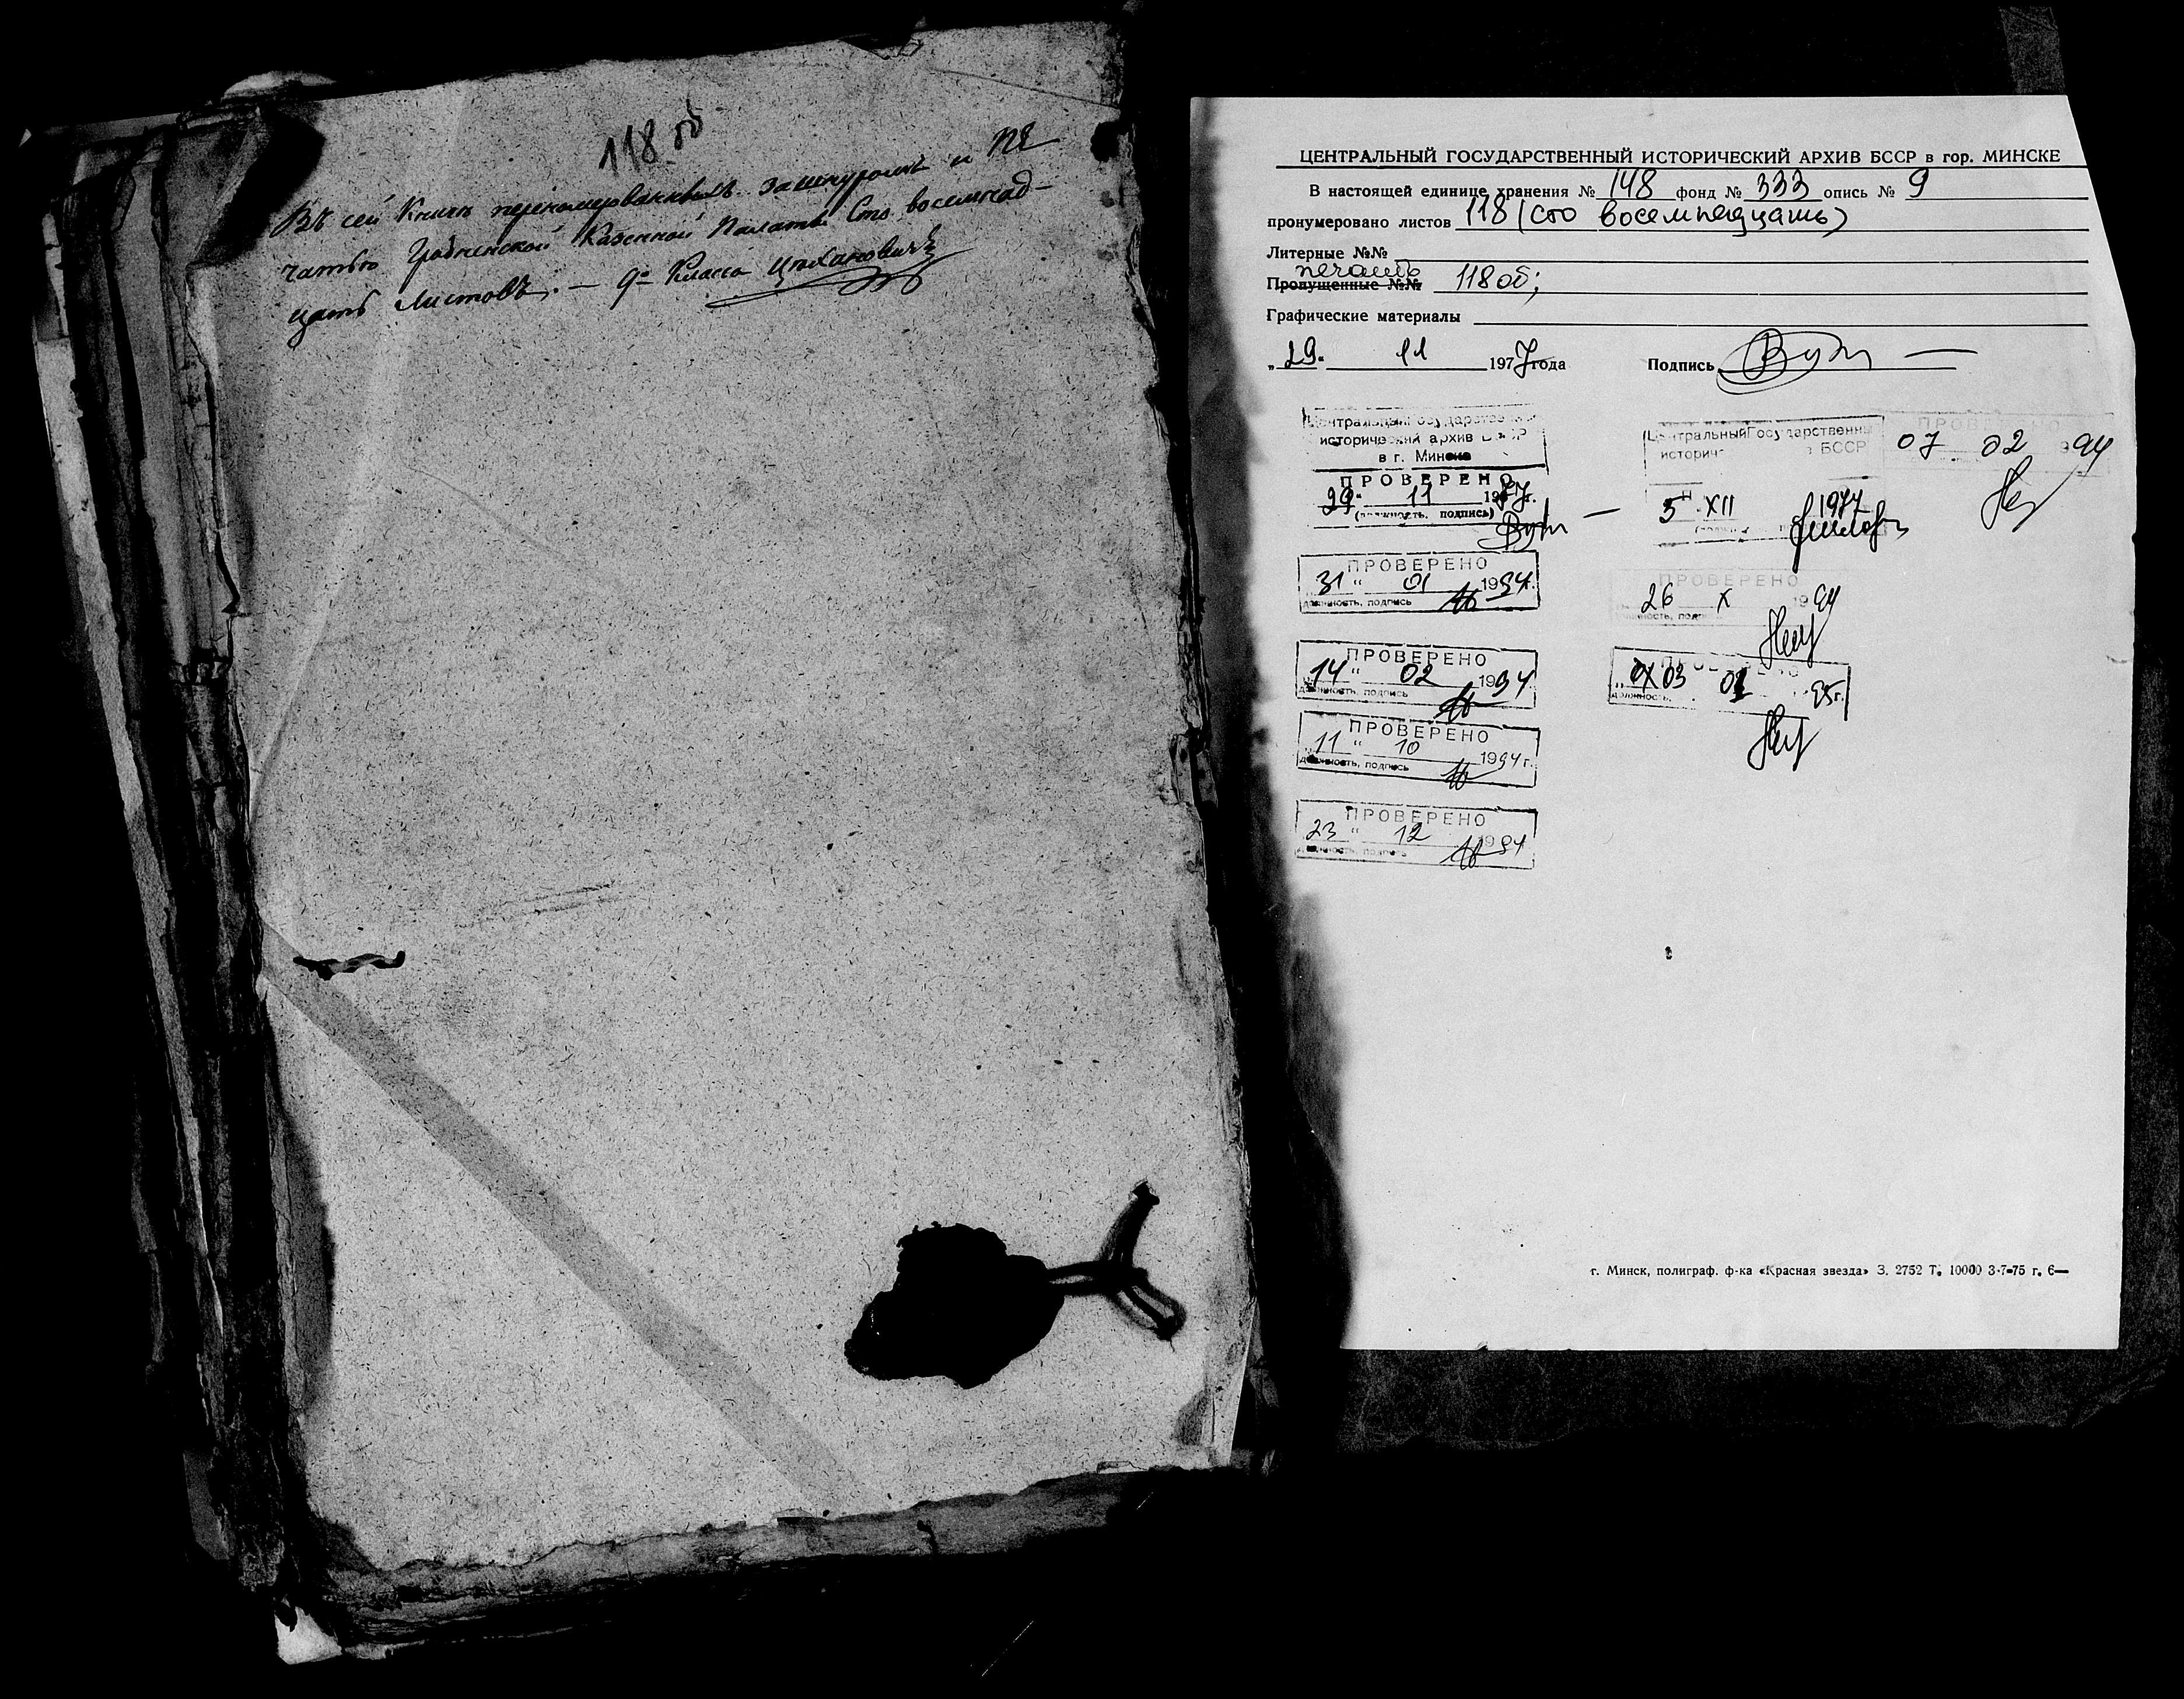 118 об
Въ сей Книгѣ перенумерованныхъ зашнуромъ и пе
чатью Гродненской Казенной Палаты Сто восемнад-
цать листовъ. — 9го Класса Цѣхановичъ
ЦЕНТРАЛЬНЫЙ ГОСУДАРСТВЕННЫЙ ИСТОРИЧЕСКИЙ АРХИВ БССР в гор. МИНСКЕ
В настоящей единице хранения № 148 фонд № 333 опись № 9
пронумеровано листов 118 (сто восемнадцать)
Литерные №№
печать
Пропущенные №№ 118 об;
Графические материалы
„29" 11 1977 года Подпись
Центральный Государственный
исторический архив БССР
в г. Минске
ПРОВЕРЕНО
29 " 11 1977г.
(должность, подпись)
Центральный Государственны
историч БССР
5 XII 1977
ПРОВЕРЕНО
07 02 1994
ПРОВЕРЕНО
31 " 01 1994г.
должность, подпись
ПРОВЕРЕНО
26 X 1994
должность, подп
ПРОВЕРЕНО
14 " 02 1994
должность, подпись
ПРОВЕРЕНО
03 01 95г.
должность,
ПРОВЕРЕНО
11 " 10 1994г.
должность, подпись
ПРОВЕРЕНО
23 " 12 1994
должность, подпись
г. Минск, полиграф. ф-ка «Красная звезда» З. 2752 Т. 10000 3-7-75 г. 6—